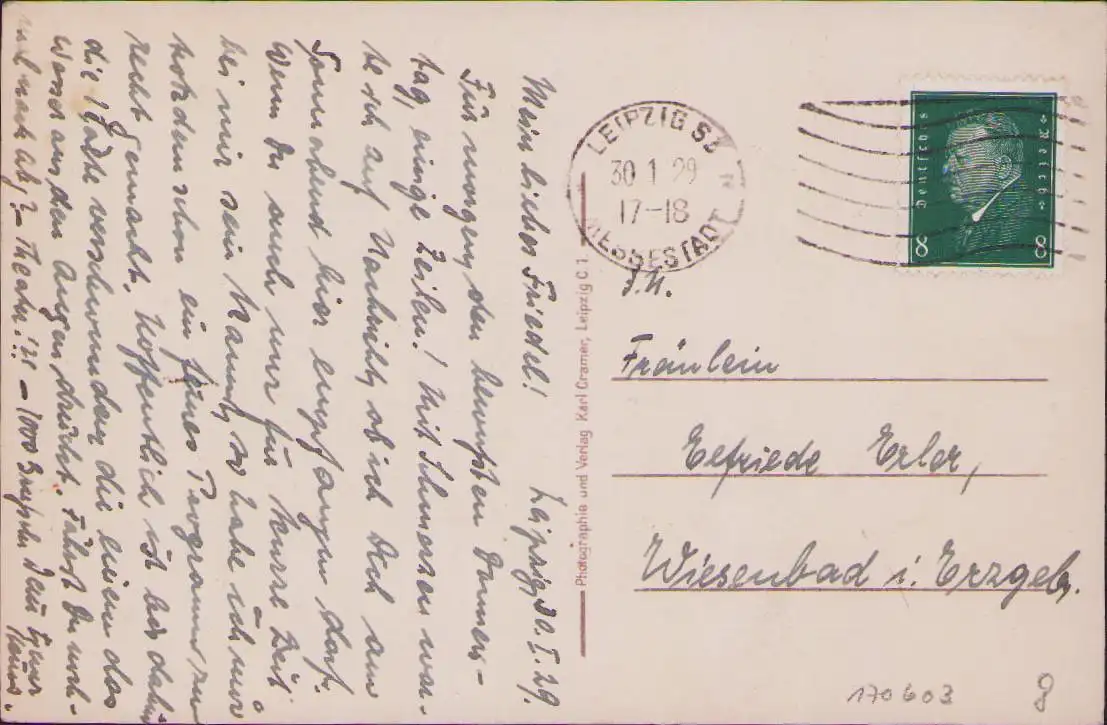 Leipzig, 30. I. 29.
Mein liebes Friedel!
Für morgen, den bewußten Donners-
tag, einige Zeilen! Mit Schmerzen war-
te ich auf Nachricht, ob ich Dich am
Sonnabend hier empfangen darf.
Wenn Du auch nur für kurze Zeit
bei mir sein kannst, so habe ich mir
trotzdem schon ein feines Programm zu-
recht gemacht. Hoffentlich ist bis dahin
die Backe verschwunden, die einem das
Wasser aus den Augen drückt. Fährst Du noch-
mal nach Ab? – Theater!?! – 1000 Busserln Dein
Hans.
Photographie und Verlag Karl Cramer, Leipzig C 1
LEIPZIG S3
30 1 29
17-18
MESSESTADT
Deutsches Reich
8 8
Fräulein
Elfriede Erler,
Wiesenbad i. Erzgeb.
170603
8